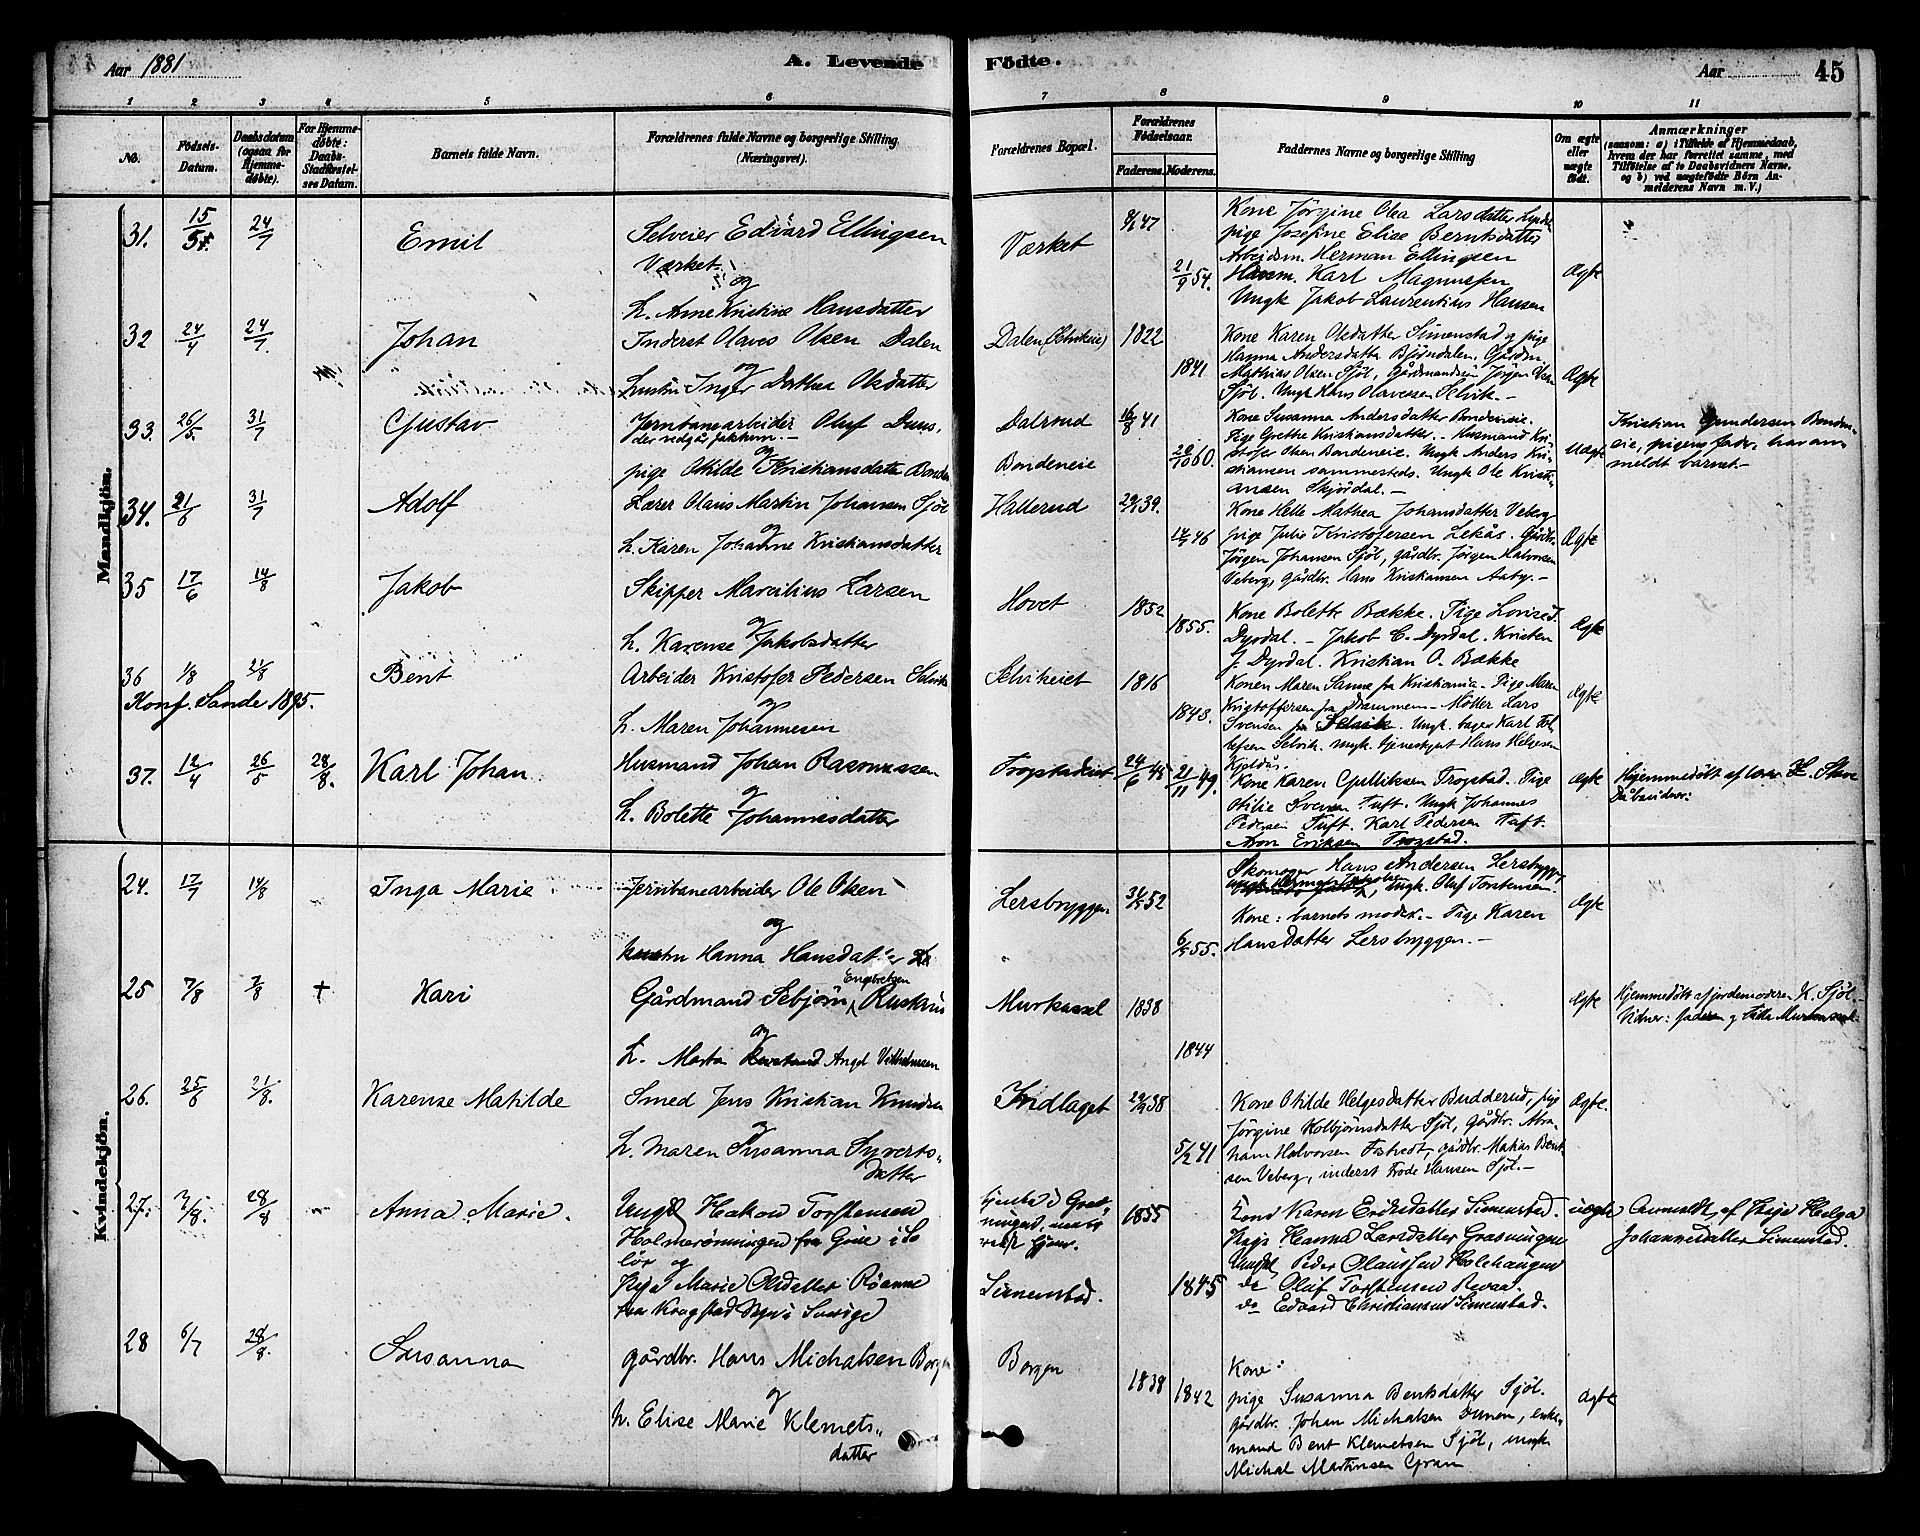 Aar 1881
A. Levende Födte.
Aar
45
1 2 3 4 5 6 7 8 9 10 11
No.
Födsels-Datum.
Daabsdatum (ogsaa for Hjemme-döbte).
For Hjemme-döbte: Daabs-Stadfæstel-ses Datum.
Barnets fulde Navn.
Forældrenes fulde Navne og borgerlige Stilling (Næringsvei).
Forældrenes Bopæl.
Forældrenes Födselsaar.
Faderens. Moderens.
Faddernes Navne og borgerlige Stilling
Om ægte eller uægte födt.
Anmærkninger
(saasom: a) i Tilfælde af Hjemmedaab,
hvem der har forrettet samme, med
Tilföielse af to Daabsvidners Navne,
og b) ved uægtefödte Börn An-
melderens Navn m. V.)
Mandkjön.
31. 15/5 24/7 Emil
Selveier Edvard Ellingsen
Værket
og
h. Anne Kristine Hansdatter
Værket 47 21/9 54.
Kone Jörgine Olea Larsdatter
pige Josefine Elise Berntsdatter
Arbeidsm. Herman Ellingsen
Karl Magnussen
Ungk Jakob Laurentius Hansen
Ægte
32 24/4 24/7. Johan
Inderst Olaves Olsen Dalen
og
Hustru Inger Dorthea Olsdatter
Dalen (Selvikeie) 1822 1841
Kone Karen Olsdatter Simenstad g pige
Hanna Andersdatter Björndalen. Gårdm.
Mathias Olsen Sjöl, Gårdmandssön Jörgen
Sjöl. Ungk Hans Olavesen Selvik.
Ægte
33. 26/5 31/7 Gustav
Jernbanearbeider Oluf
og
pige Otilde Kristiansdatter
Dalsrud
Bondeneie
16/8 41 26/10 60.
Kone Susanna Andersdatter Bondeneie.
Pige Grethe Kristiansdatter. Husmand Kri-
stofer Olsen Bondeneie. Ungk Anders Kri-
stiansen sammesteds. Ungk Ole Kristi-
ansen Skjördal.
Uægte
Kristian Gundersen Bonden-
eie, pigens fader, har an
meldt barnet.
34. 21/6 31/7 Adolf
Lærer Olaus Martin Johansen Sjöl
og
h. Karen Johanne Kristiansdatter
Hallerud 39. 46
Kone Helle Mathea Johansdatter Veberg
pige Julie Kristofersen Lekås. Gårdbr.
Jörgen Johansen Sjöl, gårdbr. Jörgen Halvorsen
Veberg, gårdbr. Hans Kristiansen Aaby.
Ægte
35 17/6 14/8 Jakob
Skipper Marcilius Larsen
og
h. Karense Jakobsdatter
Hovet 1852 1855.
Kone Bolette Bække. Pige Lovise J.
Dyrdal. Jakob C. Dyrdal. Kristen
J. Dyrdal. Kristian O. Bække
Ægte
36 1/8 21/8 Bent
Konf. Sande 1895.
Arbeider Kristofer Pedersen Selvik
og
h. Maren Johannesen
Selvikeiet 1816 1843.
Konen Maren Sanne fra Kristiania. Pige Maren
Kristoffersen fra Drammen. Möller Lars
Svensen fra Selvik. Ungk. bager Karl
Selvik. Ungk. tjenestgut Hans Helgesen
Kjeldås.
Ægte
37. 12/4 26/5 28/8. Karl Johan
Husmand Johan Rasmussen
og
h. Bolette Johannesdatter
Trogstadeiet 24/6 45 21/11 49.
Kone Karen Gulliksen Trogstad. Pige
Otilie Svensen Tuft. Ungk Johannes
Pedersen Tuft. Karl Pedersen Tuft.
Aron Eriksen Trogstad.
Ægte
Hjemmedöbt af lærer
Dåbsvidner:
Kvindekjön.
24. 17/7 14/8 Inga Marie
Jernbanearbeider Ole Olsen
og
hustru Hanna Hansdatter
Lersbryggen 52 55.
Skomager Hans Andersen Lersbryggen
Ungk. Oluf Torstensen
Kone: barnets moder. Pige Karen
Hansdatter Lersbryggen.
Ægte
25 7/8 7/8 † Kari
Gårdmand Sebjörn Engebretsen
og
h. Marta Angel
Murkassel 1838 1844
Ægte
Hjemmedöbt af jordemoderen K. Sjöl.
Vidner: faderen g
26. 25/6 21/8. Karense Matilde
Smed Jens Kristian Knudsen
og
h. Maren Susanna Syverts-
datter
38 5/2 41
Kone Otilde Helgesdatter Budderud, pige
Jörgine Kolbjörnsdatter Sjöl, Gårdbr. Abra-
ham Halvorsen gårdbr. Matias Bent-
sen Veberg, inderst Frode Hansen Sjöl.
Ægte.
27. 28/8 Anna Marie.
Ungk Hakon Torstensen
Holmerönningen fra Grue i So
lör og
pige Marie Olsdatter Röanne
fra
Simenstad.
1855 1845
Kone Karen Eriksdatter Simenstad.
Pige Hanna Larsdatter
Ungk Peder Olaussen Holehaugen
do Oluf Torstensen
do Edvard Christiansen Simenstad.
uægte
Anmeldt af Pige Helga
Johannesdatter Simenstad.
28 6/7 28/8. Susanna
gårdbr. Hans Michalsen Borgen
og
h. Elise Marie Klemets-
datter
Borgen 1838 1842
Kone:
pige Susanna Bentsdatter Sjöl.
gårdbr. Johan Michalsen enke-
mand Bent Klemetsen Sjöl, ungk
Michal Martinsen Gran
Ægte